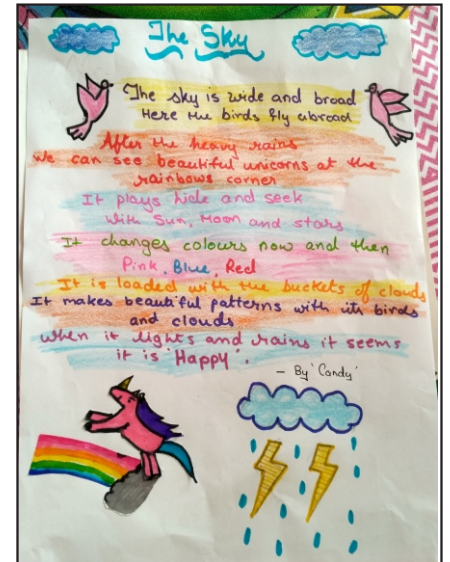 The Sky
The sky is wide and broad
Here the birds fly abroad
After the heavy rains
we can see beautiful unicorns at the
rainbows corner
It plays hide and seek
With Sun, Moon and stars
It changes colours now and then
Pink, Blue, Red
It is loaded with the buckets of clouds
It makes beautiful patterns with its birds
and clouds
When it lights and rains it seems
it is 'Happy'.
- By 'Candy'